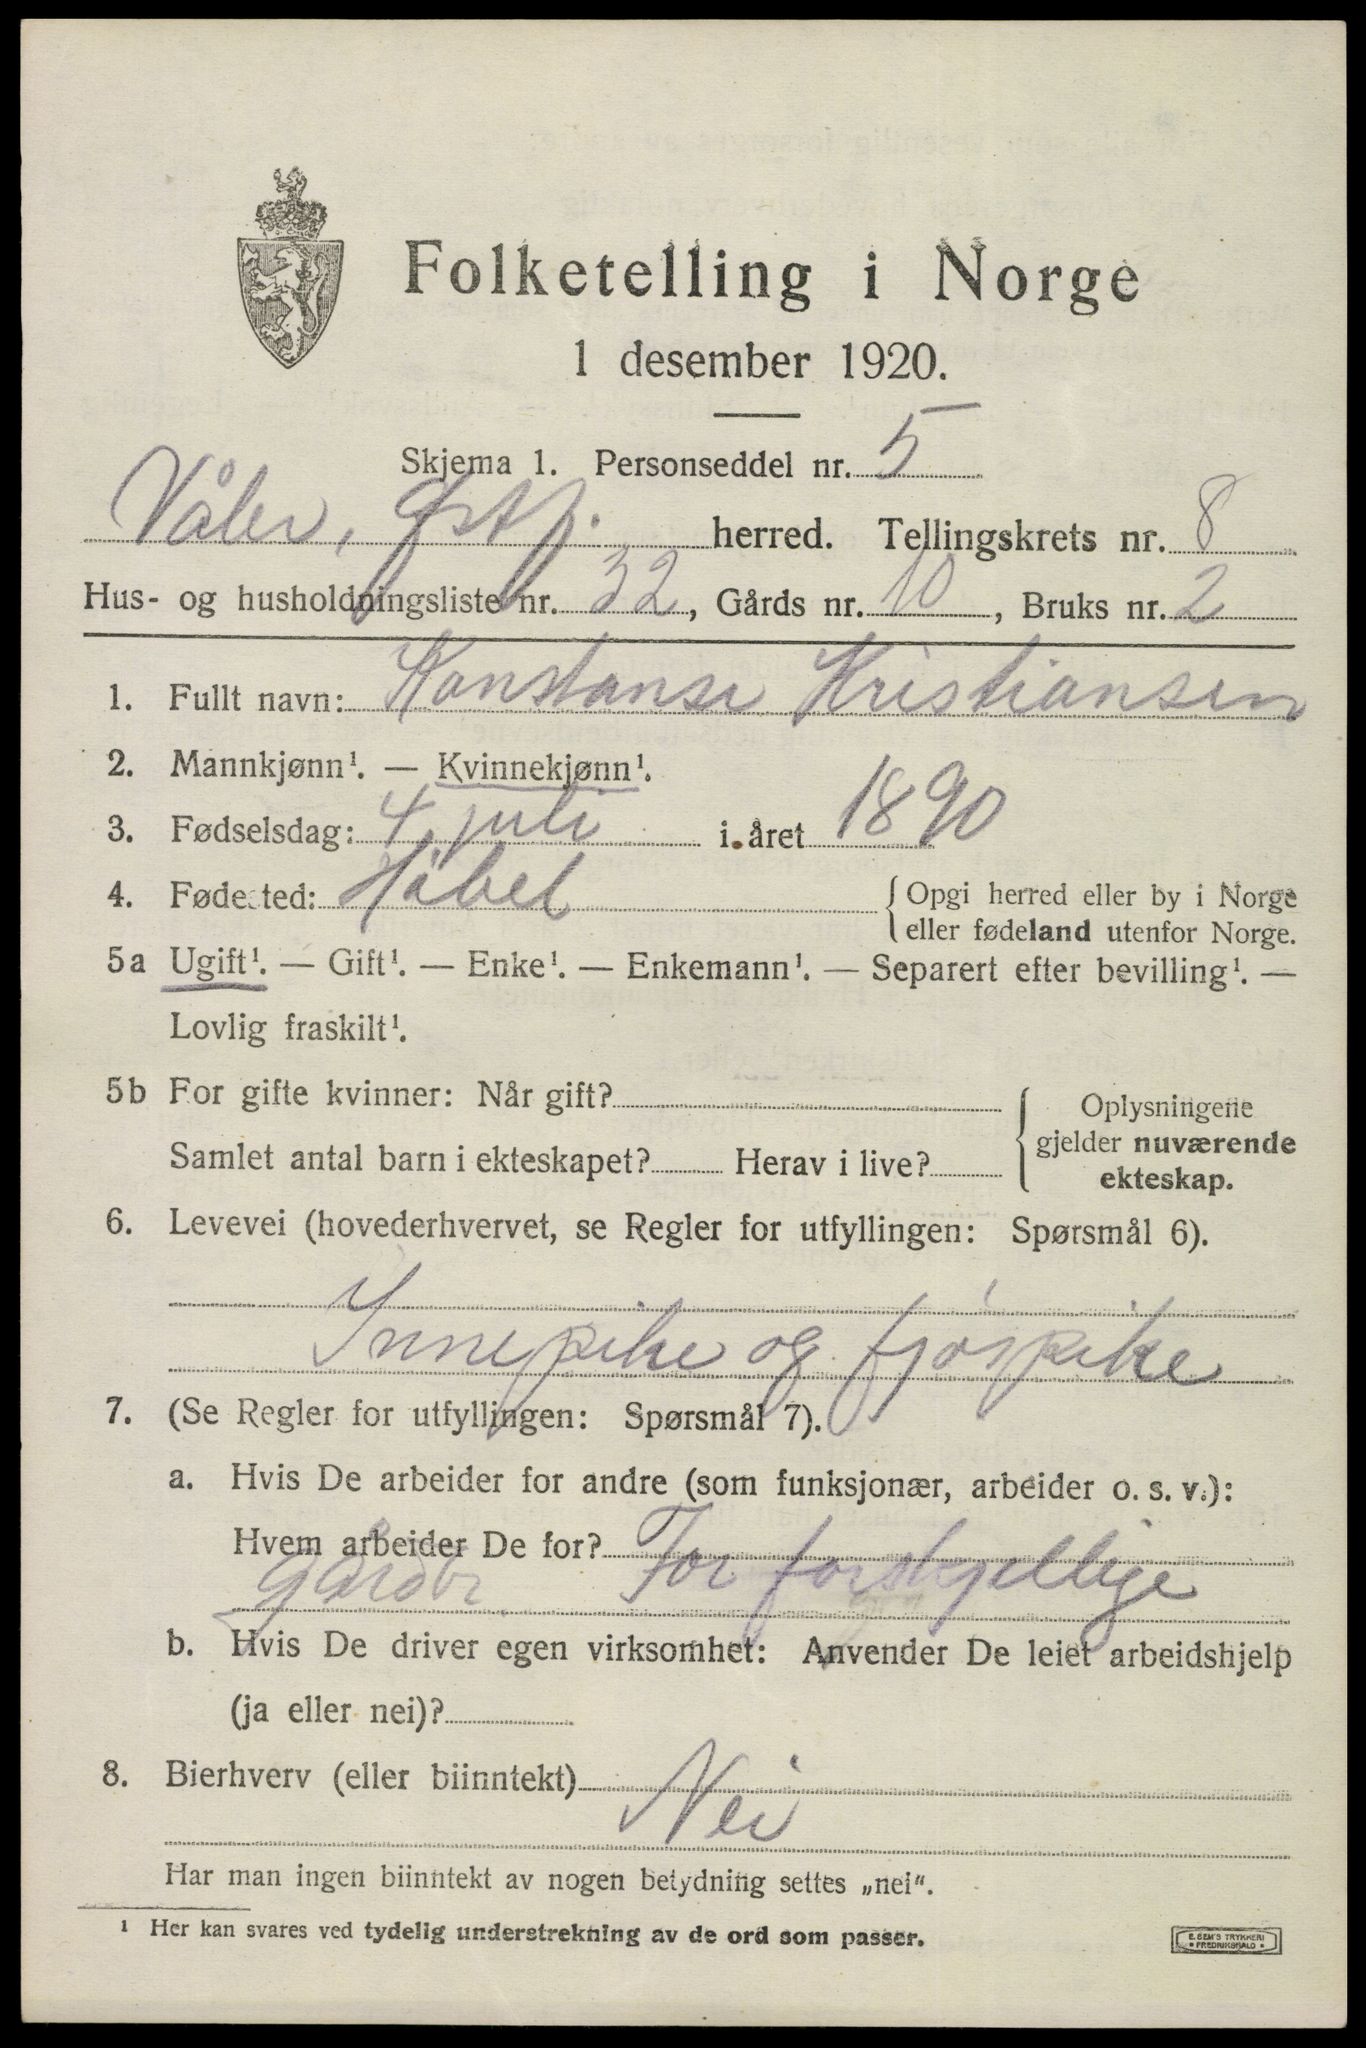 Folketelling i Norge
1 desember 1920.
Skjema 1. Personseddel nr. 5
Våler, Østf. herred. Tellingskrets nr. 8
Hus- og husholdningsliste nr. 32, Gårds nr. 10, Bruks nr. 2
1. Fullt navn: Konstanse Kristiansen
2. Mannkjønn¹. — Kvinnekjønn¹.
3. Fødselsdag: 4 juli i året 1890
4. Fødested: Håbel { Opgi herred eller by i Norge
eller fødeland utenfor Norge.
5a Ugift¹. — Gift¹. — Enke¹. — Enkemann¹. — Separert efter bevilling¹. —
Lovlig fraskilt¹.
5b For gifte kvinner: Når gift? { Oplysningene
Samlet antal barn i ekteskapet? Herav i live? gjelder nuværende
ekteskap.
6. Levevei (hovederhvervet, se Regler for utfyllingen: Spørsmål 6).
Innepike og fjøspike
7. (Se Regler for utfyllingen: Spørsmål 7).
a. Hvis De arbeider for andre (som funksjonær, arbeider o. s. v.):
Hvem arbeider De for? For forskjellige
gårdbr.
b. Hvis De driver egen virksomhet: Anvender De leiet arbeidshjelp
(ja eller nei)?
8. Bierhverv (eller biinntekt)
Nei
Har man ingen biinntekt av nogen betydning settes „nei".
¹ Her kan svares ved tydelig understrekning av de ord som passer.
E. SEM'S TRYKKERI
• FREDRIKSHALD •